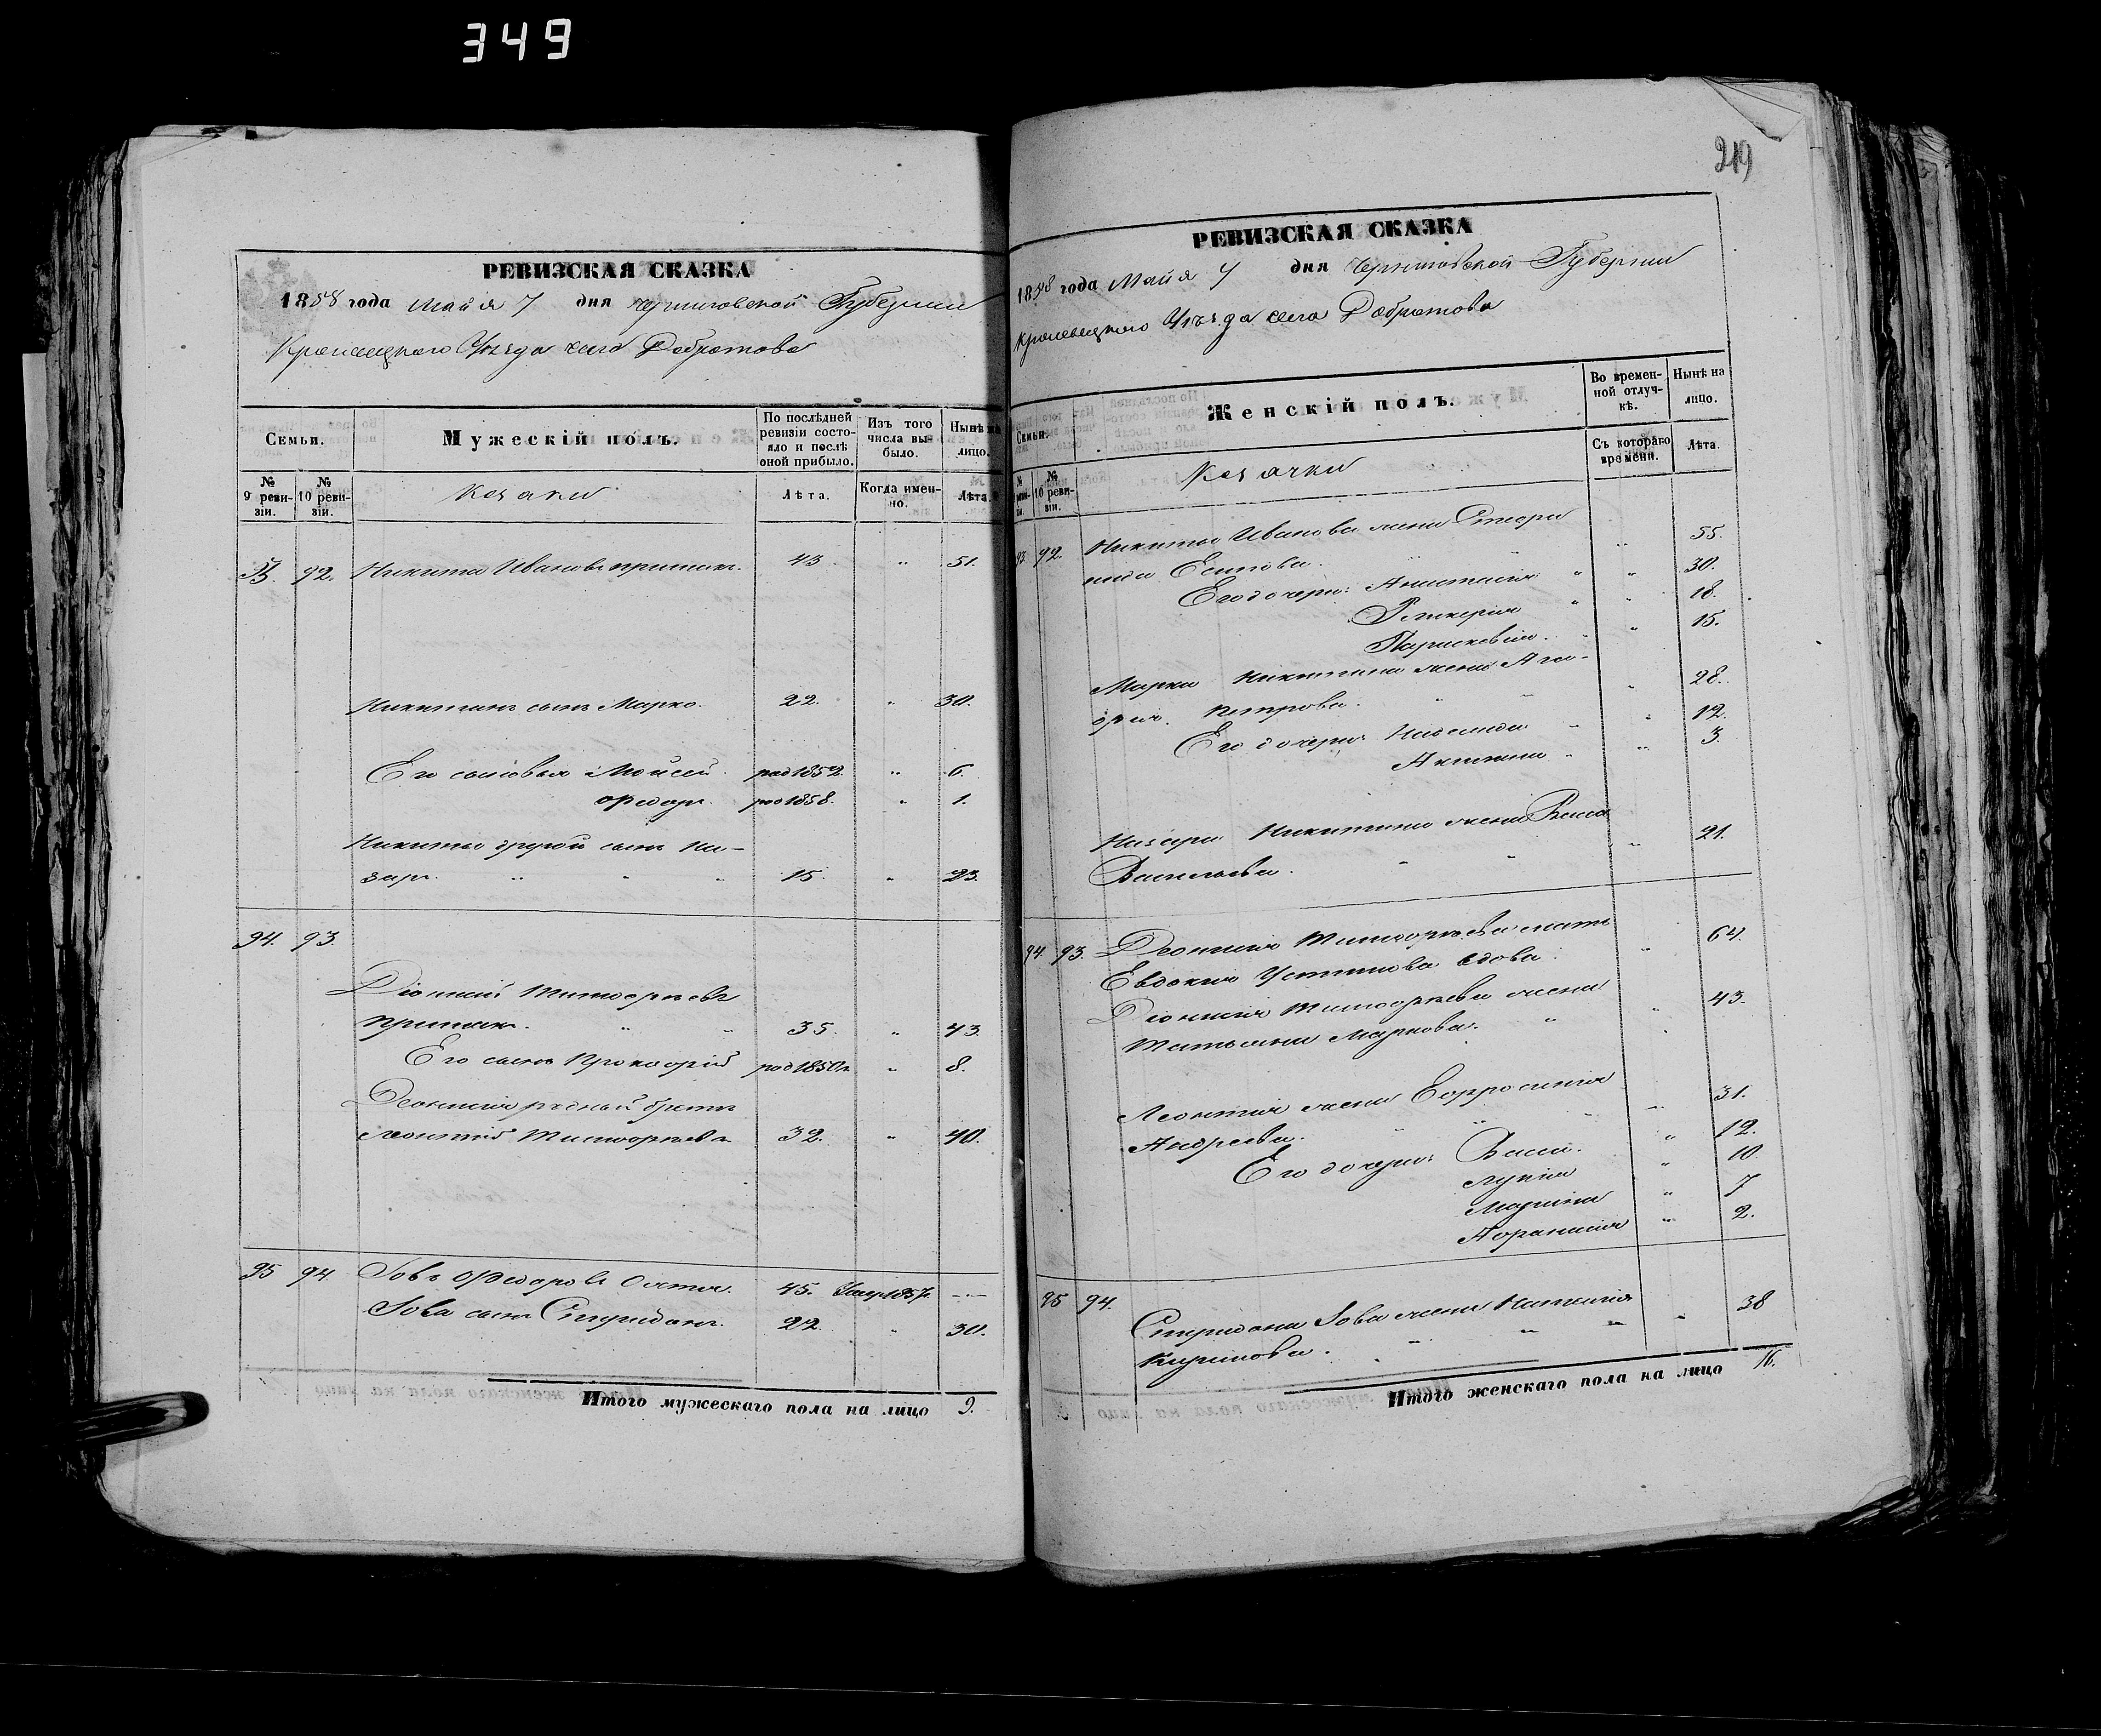 349
РЕВИЗСКАЯ СКАЗКА
1858 года Майя 7 дня Черниговской Губернии
Кролевецкого Уѣзда села Добротова
Семьи.
Мужескій полъ.
По послѣдней ревизіи состояло и послѣ оной прибыло.
Изъ того числа выбыло.
Нынѣ на лицо.
№ 9 ревизіи.
№ 10 ревизіи.
Козаки
Лѣта.
Когда именно.
Лѣта.
93. 92. Никита Ивановъ Примакъ. 43 " 51.
Никитинъ сынъ Марко. 22. " 30.
Его сыновья Мойсей род 1852. " 6.
Федоръ. род 1858. " 1.
Никиты другой сынъ На-
заръ. " " " 15. " 23.
94. 93.
Діонисій Тимофѣевъ
Примакъ. " " 35. " 43.
Его сынъ Прокофій род 1850 г. " 8.
Деонисія родный братъ
Леонтій Тимофѣевъ 32. " 40.
95 94. Іовъ Федоровъ 45. Умер 1857 г. —
Іова сынъ Спиридонъ. 22. " 30.
Итого мужескаго пола на лицо 9.
249
РЕВИЗСКАЯ СКАЗКА
1858 года Майя 7 дня Черниговской Губернии
Кролевецкого Уѣзда села Добротова
Семьи.
Женскій полъ.
Во временной отлучкѣ.
Нынѣ на лицо.
№ 10 ревизіи.
Козачки
Съ котораго времени.
Лѣта.
93 92. Никиты Иванова жена Степа
нида Есипова. " " " 55.
Его дочери: Анастасія " " 30.
Гликерія " " 18.
Параскевія. " " 15.
Марка Никитина жена Ага-
фія. Петрова. " " " 28.
Его дочери Надежда " " 12.
Акилина " " 3.
Назара Никитина жена Васса
Васильева. " " " 21.
94. 93. Деонисія Тимофѣева мать
Евдокія Устинова вдова. " 64.
Діонисія Тимофѣева жена
Татьяна Маркова. " " 43.
Леонтія жена Ефросинія
Андреева. " " " " 31.
Его дочери: Васса. " 12.
Лукія " 10
Марина " 7
Афанасія " 2.
95 94.
Спиридона Іова жена Наталія
Кирилова. " " " " 38
Итого женскаго пола на лицо 16.